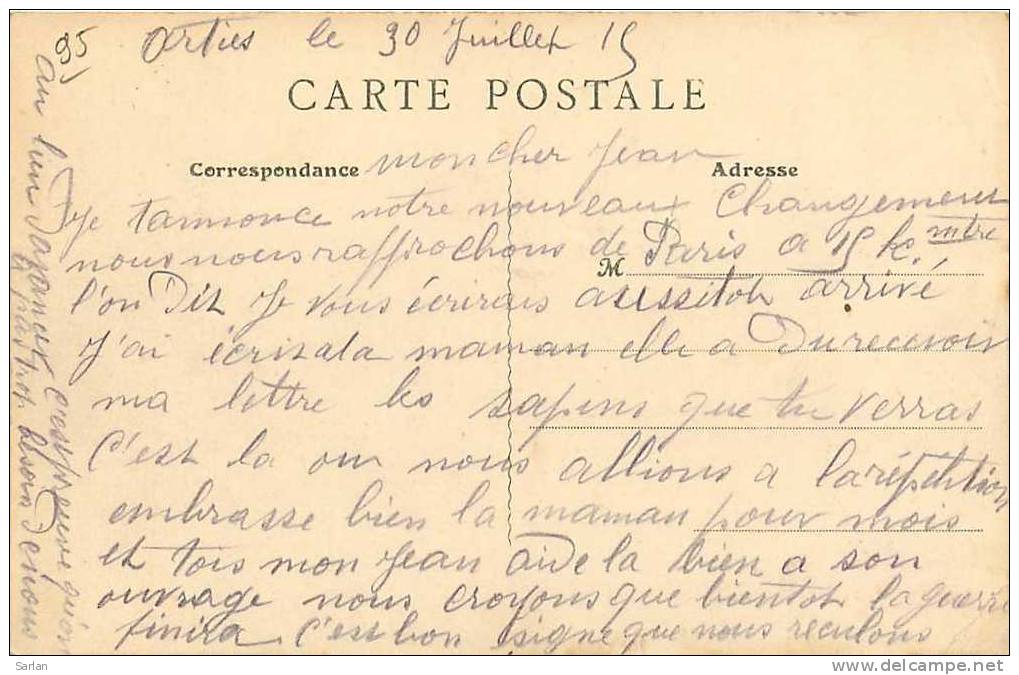 95
Orties le 30 Juillet 15
CARTE POSTALE
Correspondance
Adresse
mon cher Jean
Je tannonce notre nouveaux Changement
nous nous rapprochons de Paris a 15 k. mtre
M
l'on Dit Je vous écrirais aussitot arrivé
J'ai écrit ala maman elle a Du recevoir
ma lettre les sapins que tu verras
C'est la ou nous allions a la répétition
embrasse bien la maman pour mois
et tois mon Jean aide la bien a son
ouvrage nous croyons que bientot la guerre
finira c'est bon signe que nous reculons
au lieu D'avancer c'est preuve qu'on
a pas trop besoin De nous
Sarlan
www.delcampe.net